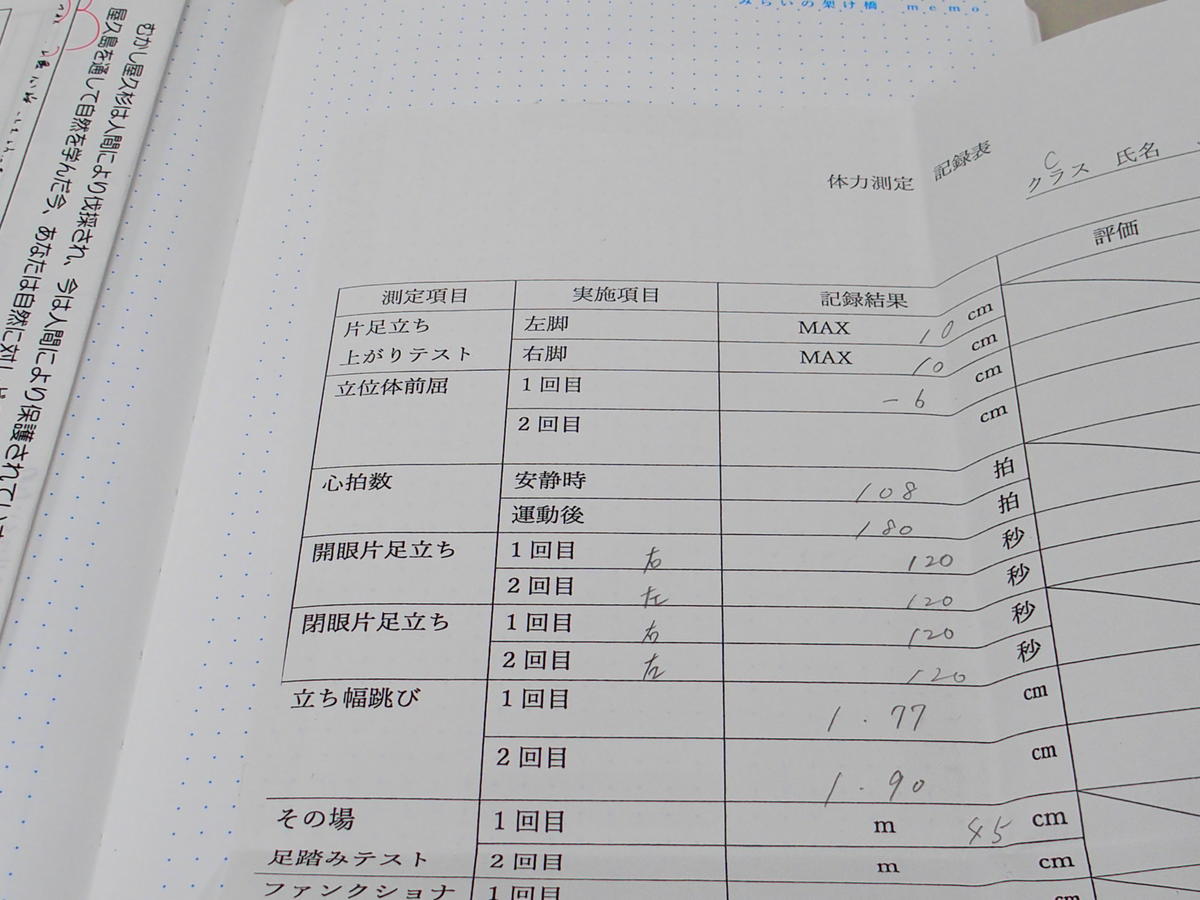 みらいの架け橋 memo
むかし屋久杉は人間により伐採され、今は人間により保護されてい
屋久島を通して自然を学んだ今、あなたは自然に対し
体力測定 記録表
C
クラス 氏名
測定項目 実施項目 記録結果 評価
片足立ち 左脚 MAX 10 cm
上がりテスト 右脚 MAX 10 cm
立位体前屈 1回目 -6 cm
2回目 cm
心拍数 安静時 108 拍
運動後 180 拍
開眼片足立ち 1回目 右 120 秒
2回目 左 120 秒
閉眼片足立ち 1回目 右 120 秒
2回目 左 120 秒
立ち幅跳び 1回目 1.77 cm
2回目 1.90 cm
その場 1回目 m 45 cm
足踏みテスト 2回目 m cm
ファンクショナ 1回目 cm